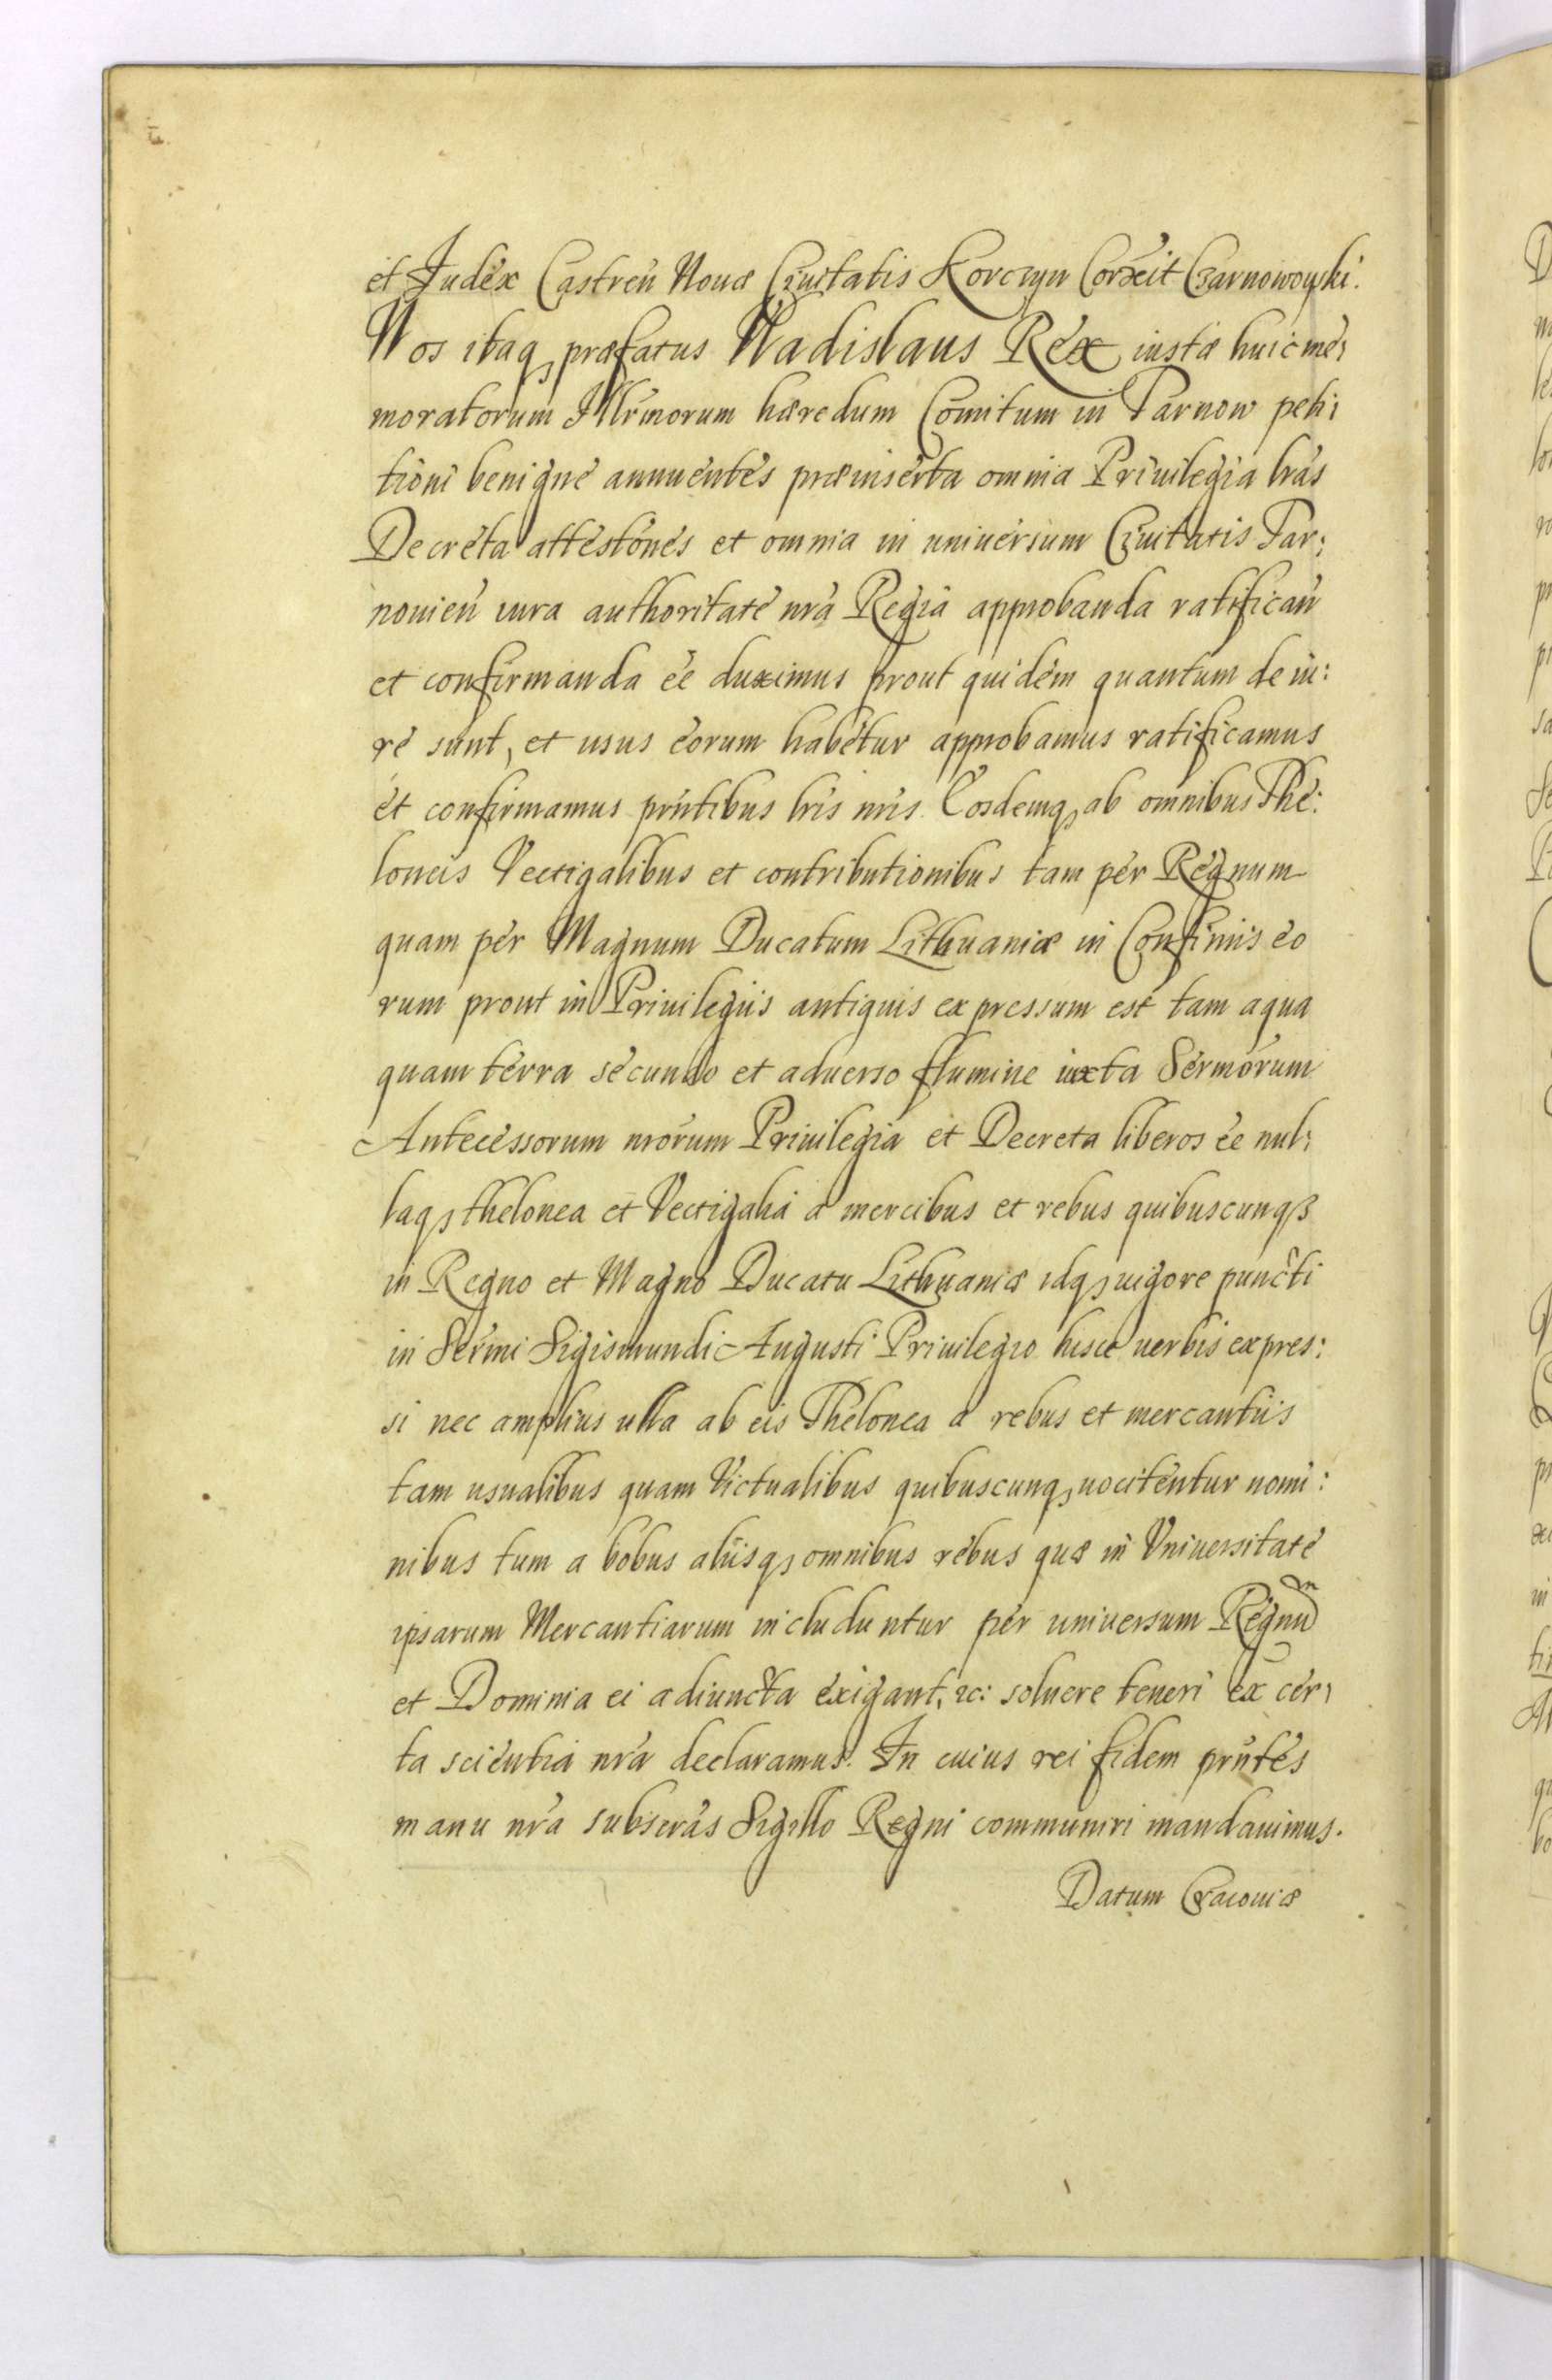 et Judex Castren̄ Nouæ Ciuitatis Korczyn Correxit Czarnowoyski.
Nos itaq₃ præfatus Vladislaus Rex iustæ huic me:
moratorum Illr̄morum hæredum Comitum in Tarnow peti:
tioni benigne annuentes præinserta omnia Priuilegia lr̄as
Decreta attestōnes et omnia in uniuersum Ciuitatis Tar:
nouien̄ iura authoritate nr̄a Regia approbanda ratifican̄
et confirmanda ēe duximus prout quidem quantum de iu:
re sunt, et usus eorum habetur approbamus ratificamus
et confirmamus prn̄tibus lr̄is nr̄is. Eosdemq₃ ab omnibus The:
loneis Vectigalibus et contributionibus tam per Regnum
quam per Magnum Ducatum Lithuaniæ in Confinijs eo
rum prout in Priuilegijs antiquis expressum est tam aqua
quam terra secundo et aduerso flumine iuxta Serm̄orum
Antecessorum nr̄orum Priuilegia et Decreta liberos ēe nul:
laq₃ thelonea et Vectigalia a mercibus et rebus quibuscunq₃
in Regno et Magno Ducatu Lithuaniæ idq₃ uigore puncti
in Serm̄i Sigismundi Augusti Priuilegio hisce uerbis expres:
si nec amplius ulla ab eis Thelonea a rebus et mercantijs
tam usualibus quam Victualibus quibuscunq₃ uocitentur nomi:
nibus tum a bobus alijsq₃ omnibus rebus quæ in Vniuersitate
ipsarum Mercantiarum includuntur per uniuersum Regnū
et Dominia ei adiuncta exigant, &c: soluere teneri ex cer:
ta scientia nr̄a declaramus. In cuius rei fidem prn̄tes
manu nr̄a subscr̄as Sigillo Regni communiri mandauimus.
Datum Cracouiæ